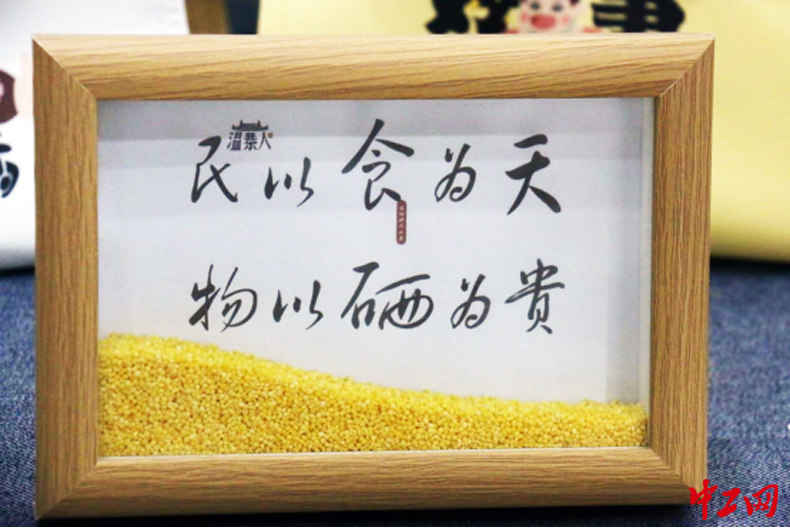 温泰人
民以食为天
物以硒为贵
中工网